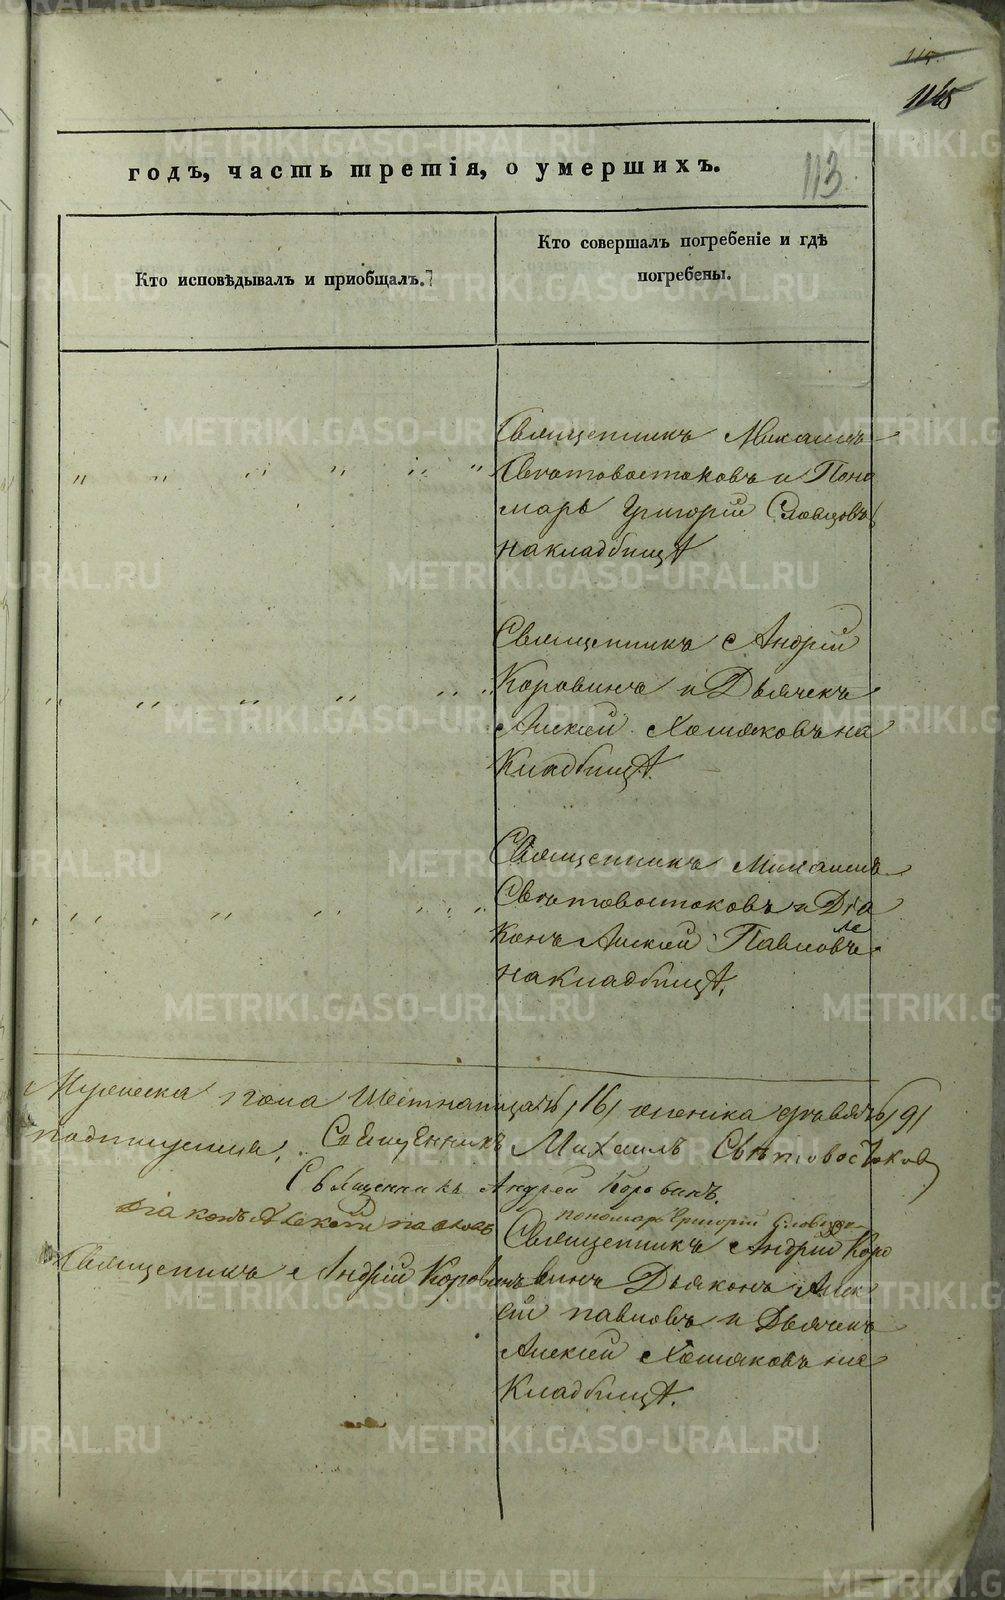 115
113
годъ, часть третія, о умершихъ.
Кто исповѣдывалъ и приобщалъ.
Кто совершалъ погребеніе и гдѣ
погребены.
Священникъ Михаилъ
Святовостоковъ и Поно
марь Григорій Словцовъ
на кладбищѣ
Священникъ Андрей
Коровинъ и Дьячекъ
Алексей Хомяковъ на
Кладбищѣ.
Священникъ Михаилъ
Святовостоковъ и Діа
конъ Алексей Павловъ
на Кладбищѣ.
Мужеска пола Шестнатцать /16/ женска девять /9/
Священникъ Михаилъ Святовостоковъ
Священникъ Андрей Коровинъ.
Діаконъ Алексей Павловъ
пономарь Григорій Словцовъ
Священникъ Андрій Коровинъ
Священникъ Андрій Коро
винъ Дьяконъ Алек
сій Павловъ и Дьячекъ
Алексей Хомяковъ на
Кладбищѣ.
METRIKI.GASO-URAL.RU